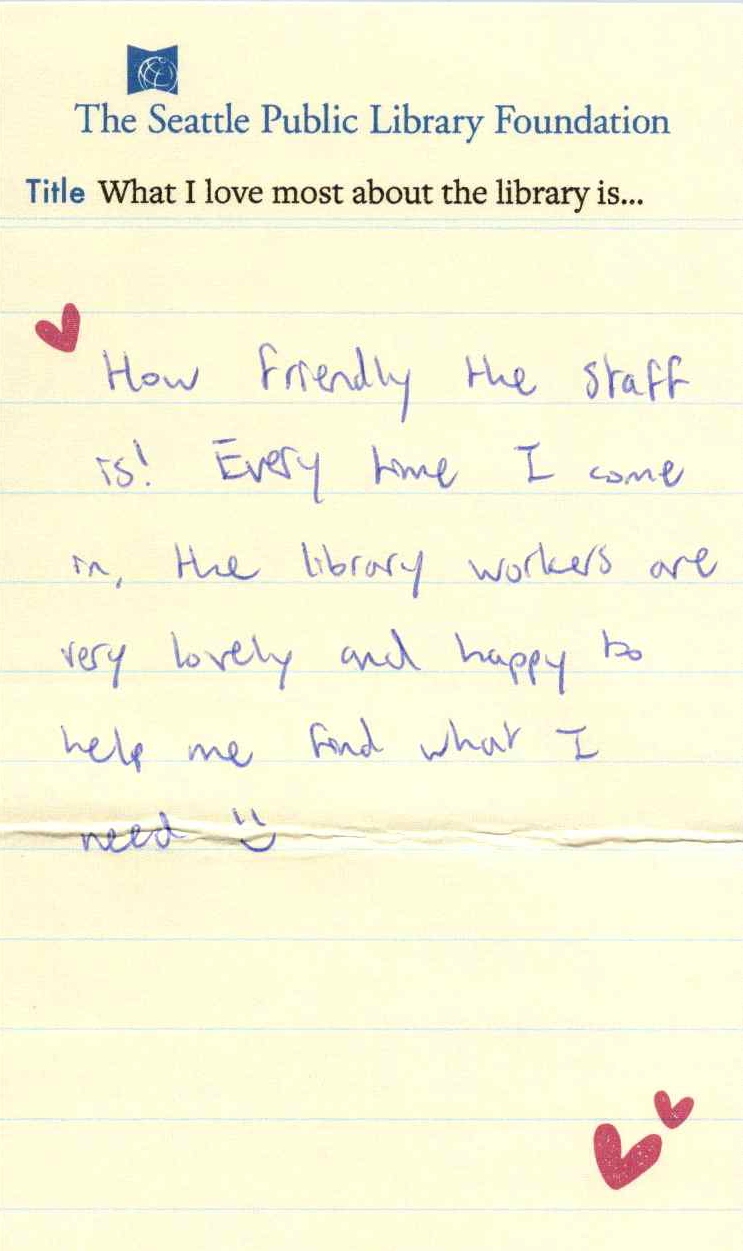 The Seattle Public Library Foundation
Title What I love most about the library is...
How friendly the staff
is! Every time I come
in, the library workers are
very lovely and happy to
help me find what I
need :)